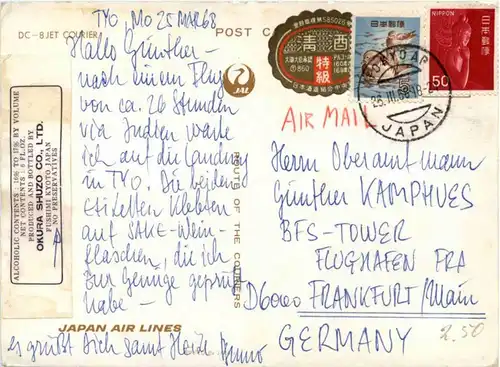 TYO, MO 25 MAR 68
DC-8 JET COURIER
POST C
Hallo Günther –
nach einem Flug
von ca. 26 Stunden
via Indien warte
ich auf die Landung
in TYO. Die beiden
Etiketten klebten
auf SAKE-Wein-
flaschen, die ich
zur Genüge geprüft
habe –
es grüßt dich samt Heide Bruno
JAPAN AIR LINES
ALCOHOLIC CONTENTS : 16% TO 17% BY VOLUME
NET CONTENTS : 6 FL.OZ.
PRODUCED AND BOTTLED BY
OKURA SHUZO CO., LTD.
FUSHIMI KYOTO JAPAN
NO PRESERVATIVES
JAL
ROUTES OF THE COURIERS
清酒
特級
日本郵便
日本郵便
NIPPON
50
JAPAN
AIR MAIL
Herrn Oberamtmann
Günther KAMPHUES
BFS-TOWER
FLUGHAFEN FRA
D6000 FRANKFURT/Main
GERMANY
2.50